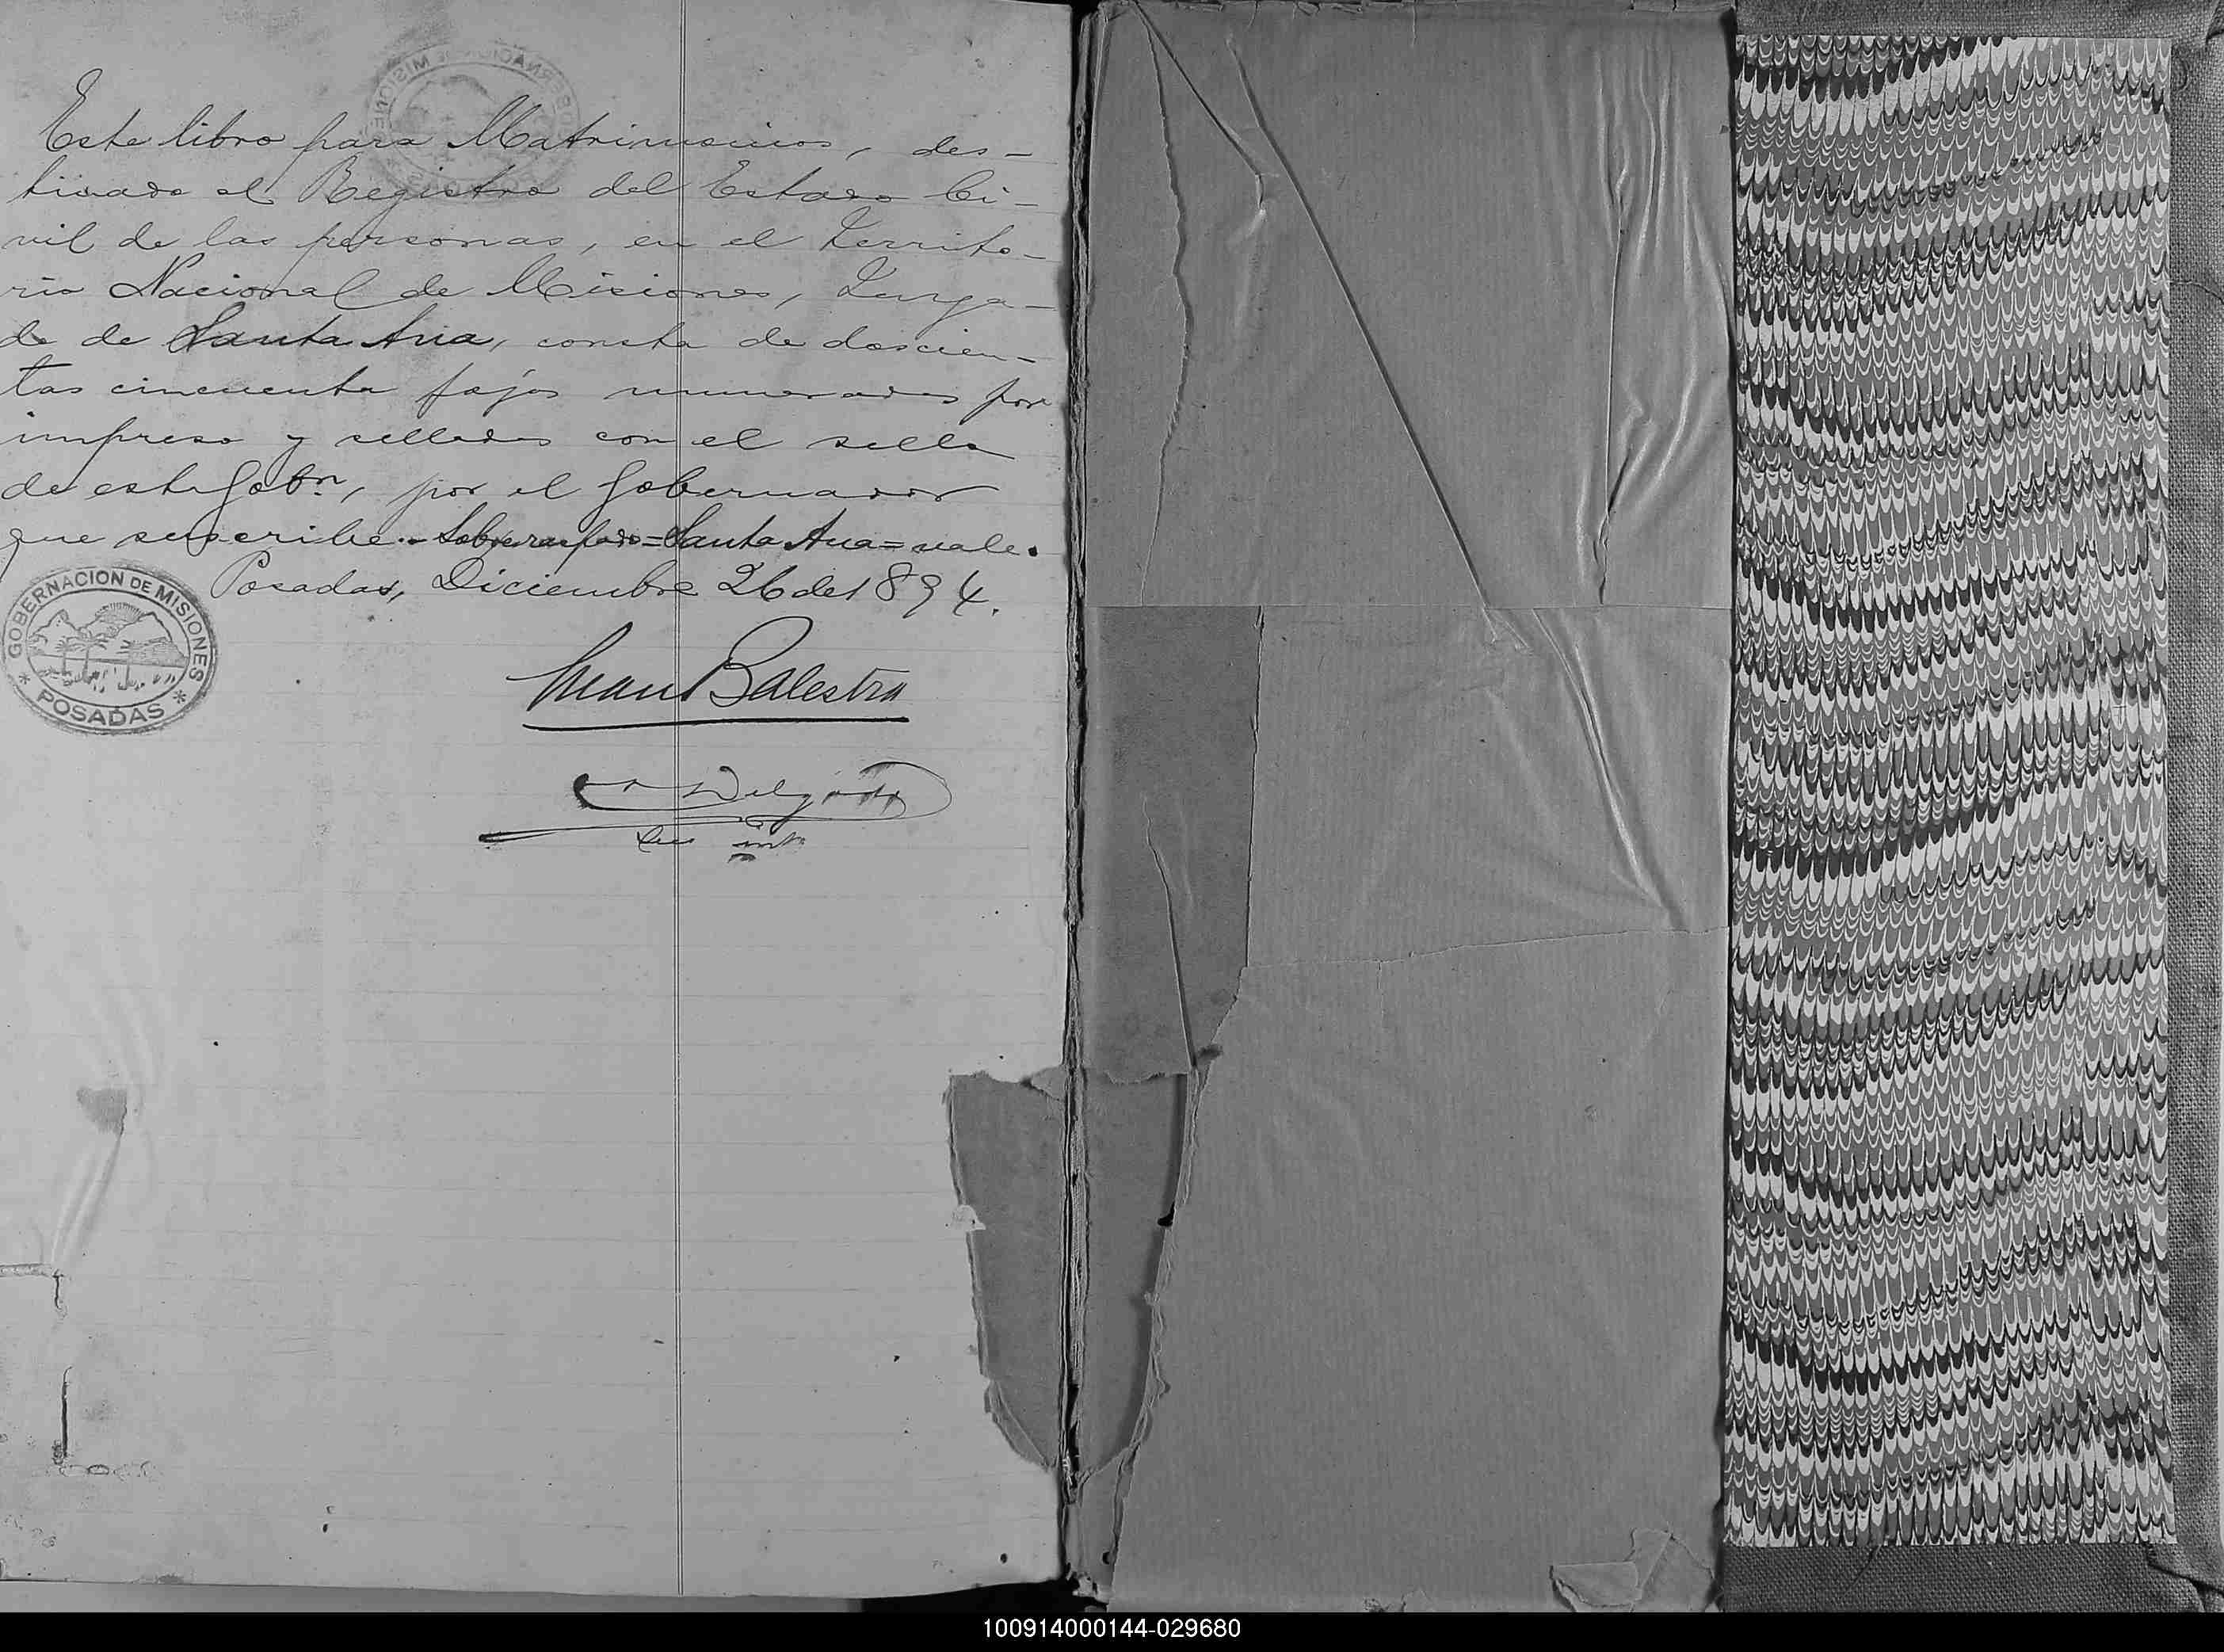 Este libro para Matrimonios, des-
tinado al Registro del Estado Ci-
vil de las personas, en el Territo-
rio Nacional de Misiones, Juzga-
do de Santa Ana, consta de doscien-
tas cincuenta fojas numeradas por
impreso y selladas con el sello
de esta Gobn, por el Gobernador
que suscribe.- Sobreraspado=Santa Ana=vale.
Posadas, Diciembre 26 de 1894.
GOBERNACION DE MISIONES
* POSADAS *
Juan Balestra
Delgado
Sec int
100914000144-029680